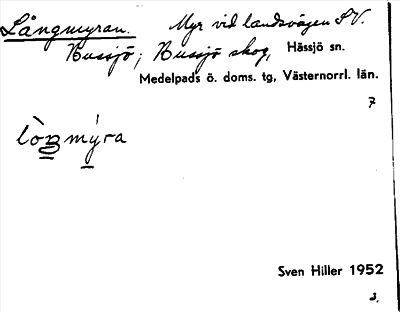 Långmyran. Myr vid landsvägen S V.
Bussjö; Bussjö skog, Hässjö sn.
Medelpads ö. doms. tg, Västernorrl. län.
7
Sven Hiller 1952
3.